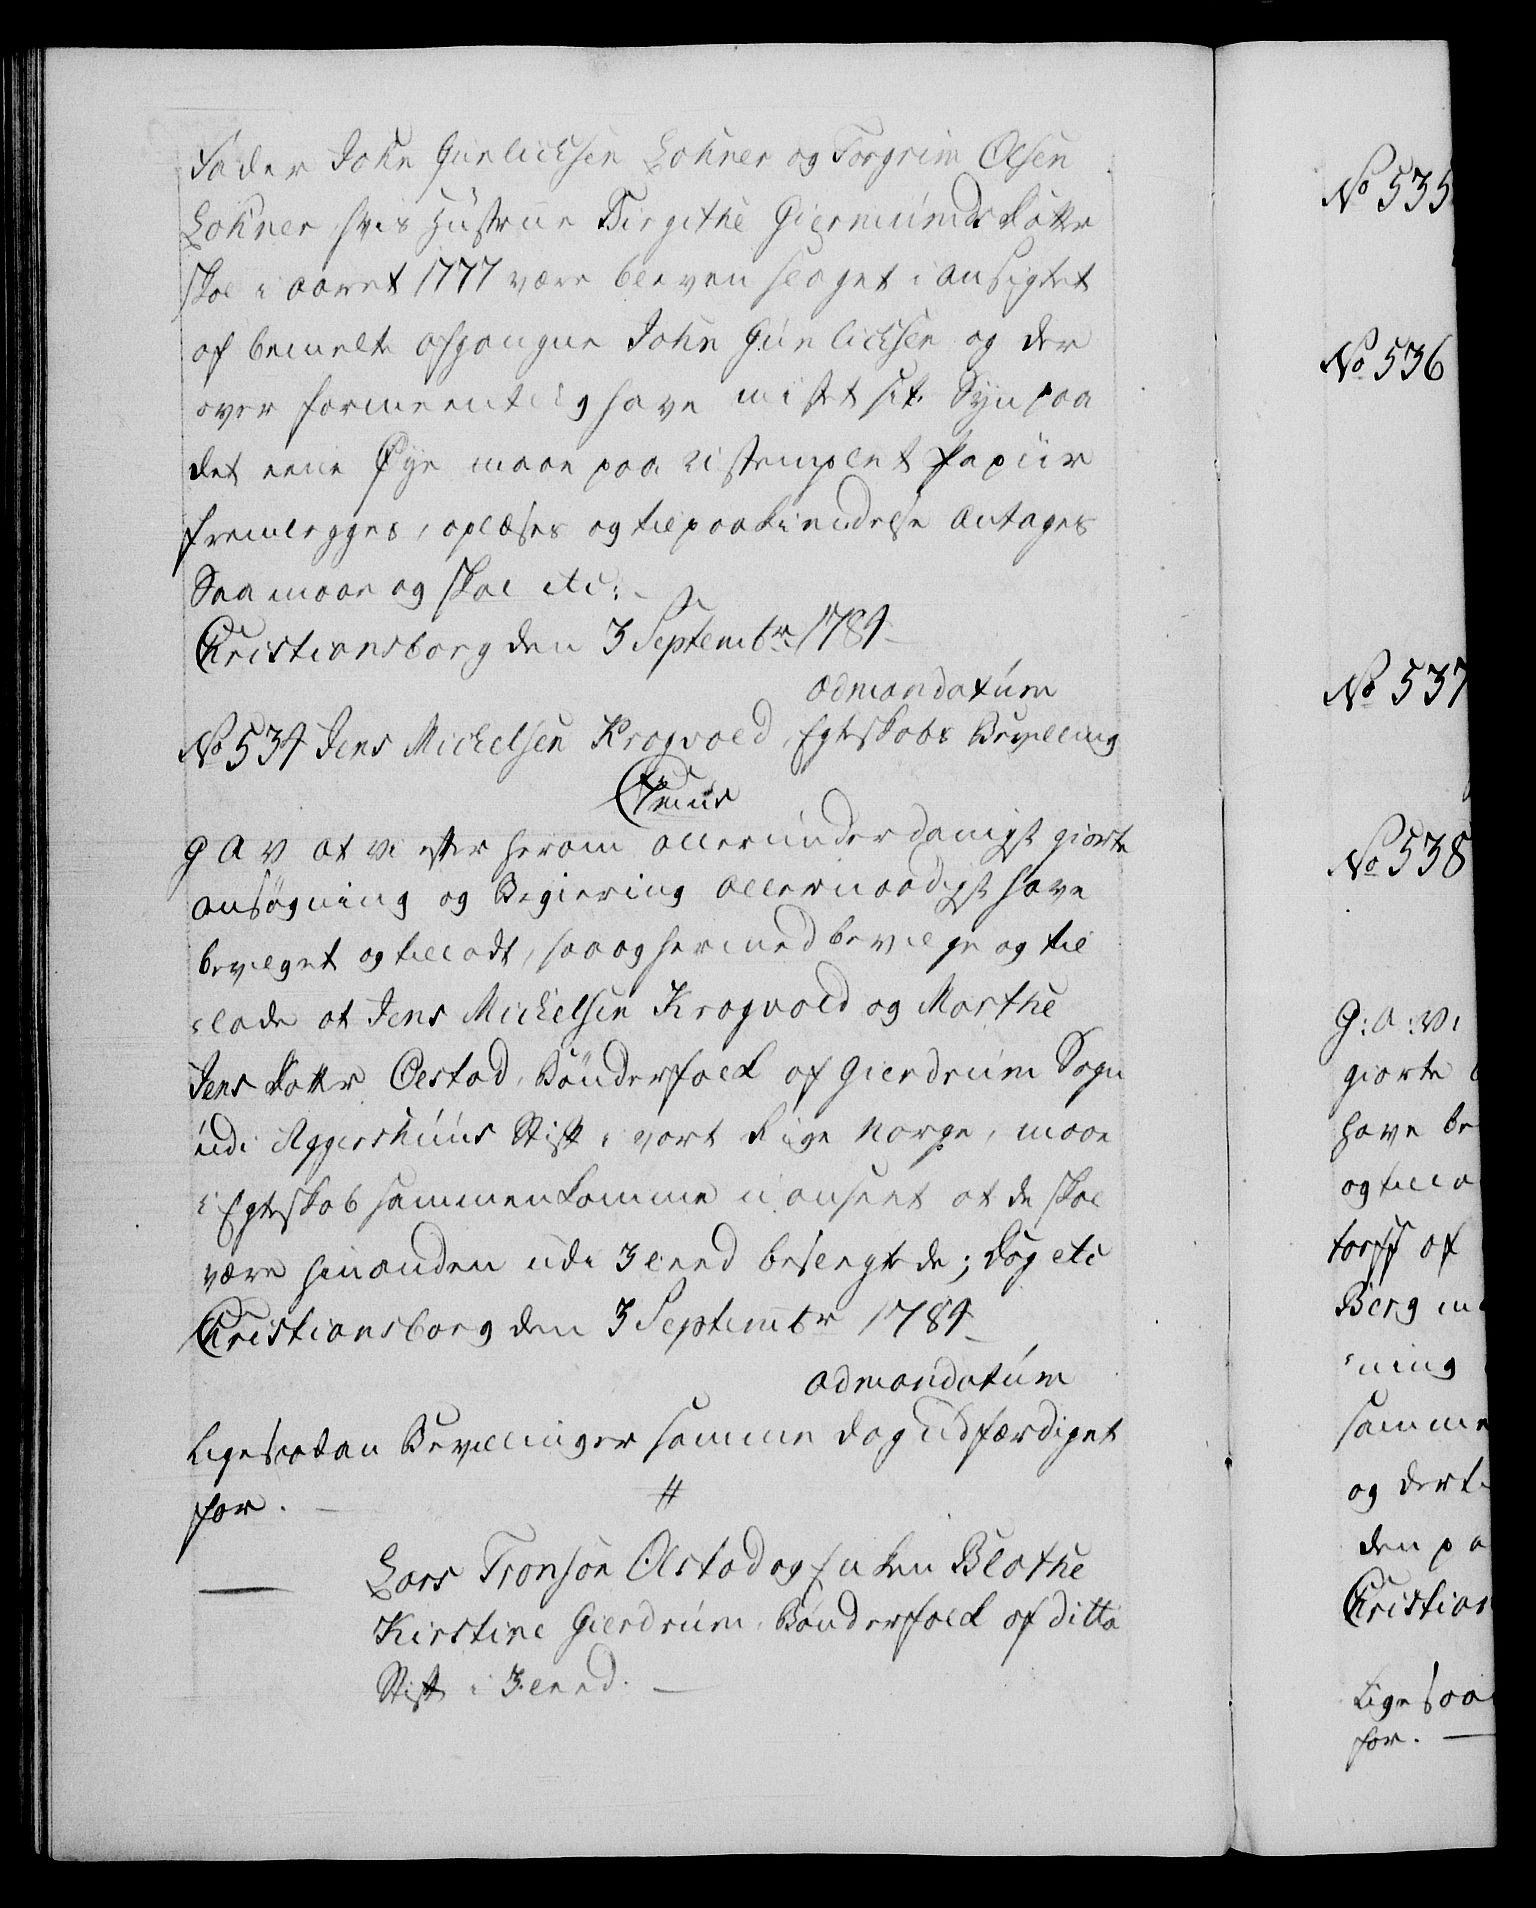 Fader John Gunlichsen Lohner og Torgrim Olsen
Lohner, hvis Hustrue Birgithe Giermunds Datter
skal i aaret 1777 være bleven slaget i Ansigtet
af bemelte afgangne John Gunlichsen og der
over formeentlig have mistet sit Syn paa
det eene Øye maae paa ustemplet Papiir
fremlegges, oplæses og til paakiendelse antages
Saa maae og skal etc:
Christiansborg den 3 Septembr: 1784
admandatum
No 534 Jens Michelsen Krogvold, Egteskabs Bevilling
Gratis
G A V at vi efter herom allerunderdanigst giorte
ansøgning og Begiering allernaadigst have
bevilget og tilladt, saa og hermed bevilge og til
lade at Jens Michelsen Krogvold og Marthe
Jens Datter Olstad, Bønderfolk af Gierdrum Sogn
udi Aggershuus Stift i vort Rige Norge, maae
i Egteskab sammenkomme uanseet at de skal
være hinanden udi 3 leed beslegtede; Dog etc
Christiansborg den 3 Septembr 1784
admandatum
Ligesaadan Bevillinger samme dag udfærdiget
for. — //
— Lars Tronsøn Olstad og Enken Blathe
Kirstine Gierdrum, Bønderfolk af ditto
Stift i 3 leed. —
No 535
No 536
No 537
No 538
G: A: V:
giorte
have be
og tilla
torff af
Berg
ning
samme
og dert
den pa
Christian
Ligesaa
for. —